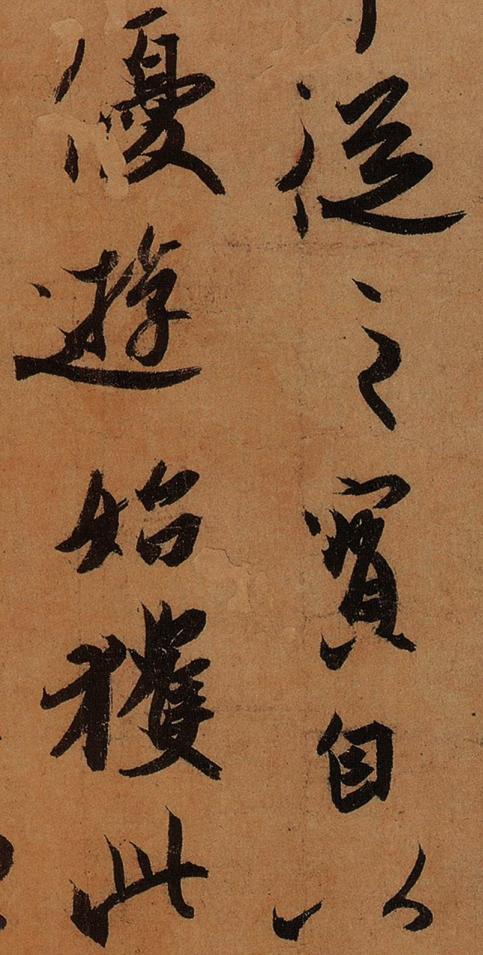 從之實自以
優遊始獲此